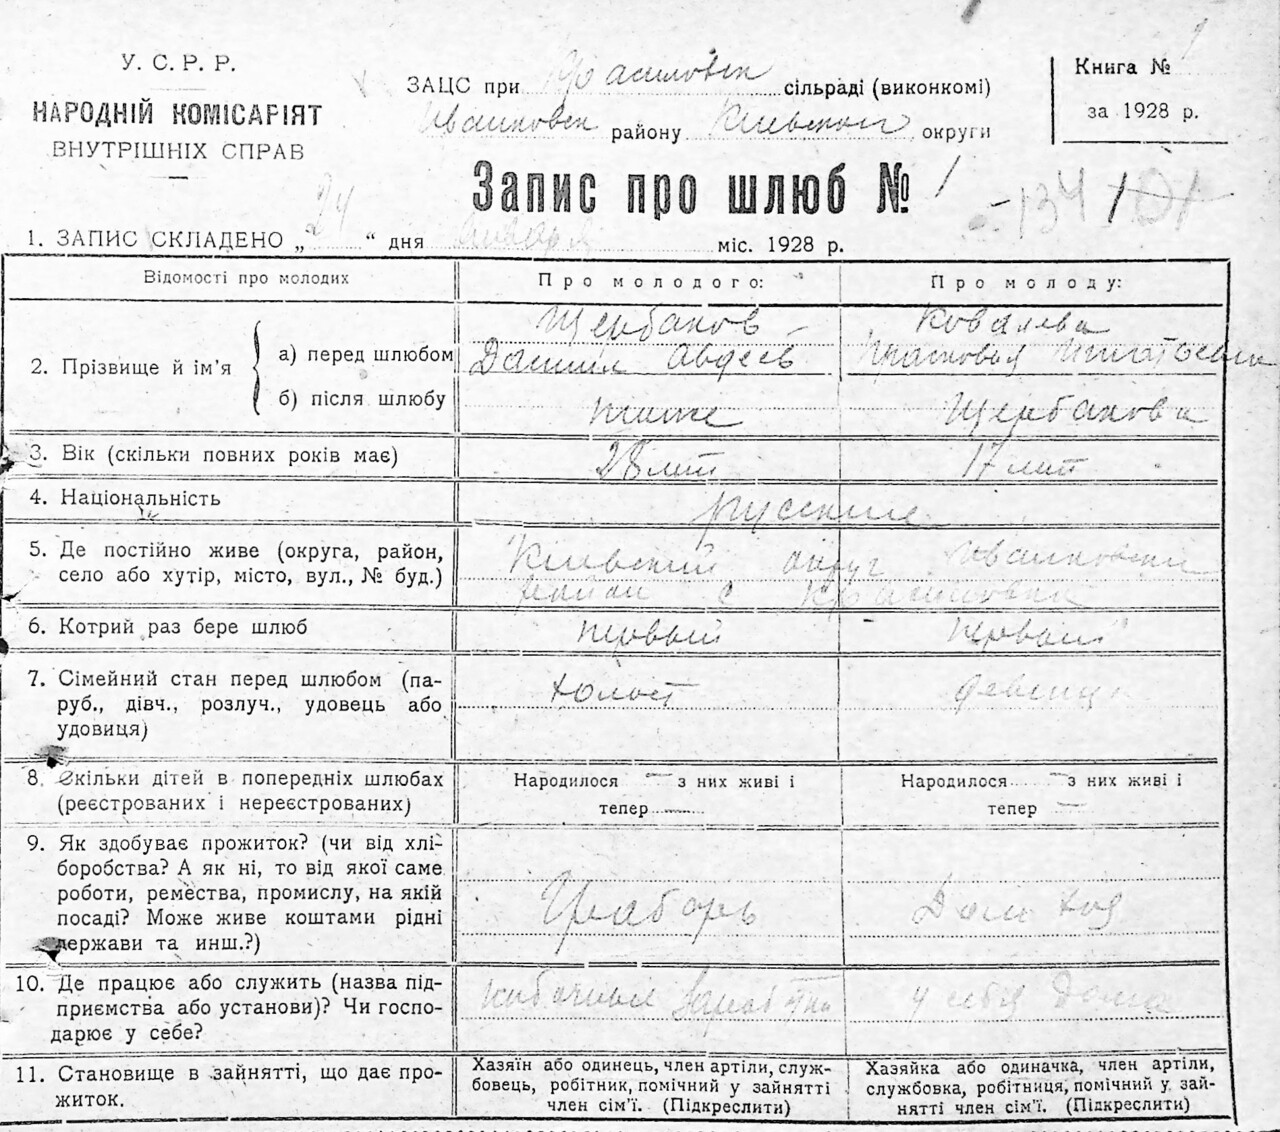 У. С. Р. Р.
НАРОДНІЙ КОМІСАРІЯТ
ВНУТРІШНІХ СПРАВ
ЗАЦС при сільраді (виконкомі)
Иванковск району Киевской округи
Книга № 1
за 1928 р.
Запис про шлюб № 1
134
1. ЗАПИС СКЛАДЕНО „24“ дня января міс. 1928 р.
Відомості про молодих
Про молодого:
Про молоду:
2. Прізвище й ім'я
а) перед шлюбом
Щербаков
Даниил Авдеев
Ковалева
Прасковья Игнатьевна
б) після шлюбу
тоже
Щербакова
3. Вік (скільки повних років має)
28 лет
17 лет
4. Національність
русские
5. Де постійно живе (округа, район,
село або хутір, місто, вул., № буд.)
Киевский округ Иванковски
район с
6. Котрий раз бере шлюб
первый
первый
7. Сімейний стан перед шлюбом (па-
руб., дівч., розлуч., удовець або
удовиця)
холост
девица
8. Скільки дітей в попередніх шлюбах
(реєстрованих і нереєстрованих)
Народилося — з них живі і
тепер
Народилося — з них живі і
тепер —
9. Як здобуває прожиток? (чи від хлі-
боробства? А як ні, то від якої саме
роботи, ремества, промислу, на якій
посаді? Може живе коштами рідні
держави та инш.?)
Грабарь
Дом хоз
10. Де працює або служить (назва під-
приємства або установи)? Чи госпо-
дарює у себе?
у себя дома
11. Становище в зайнятті, що дає про-
житок.
Хазяїн або одинець, член артіли, служ-
бовець, робітник, помічний у зайнятті
член сім'ї. (Підкреслити)
Хазяйка або одиначка, член артіли,
службовка, робітниця, помічний у зай-
нятті член сім'ї. (Підкреслити)